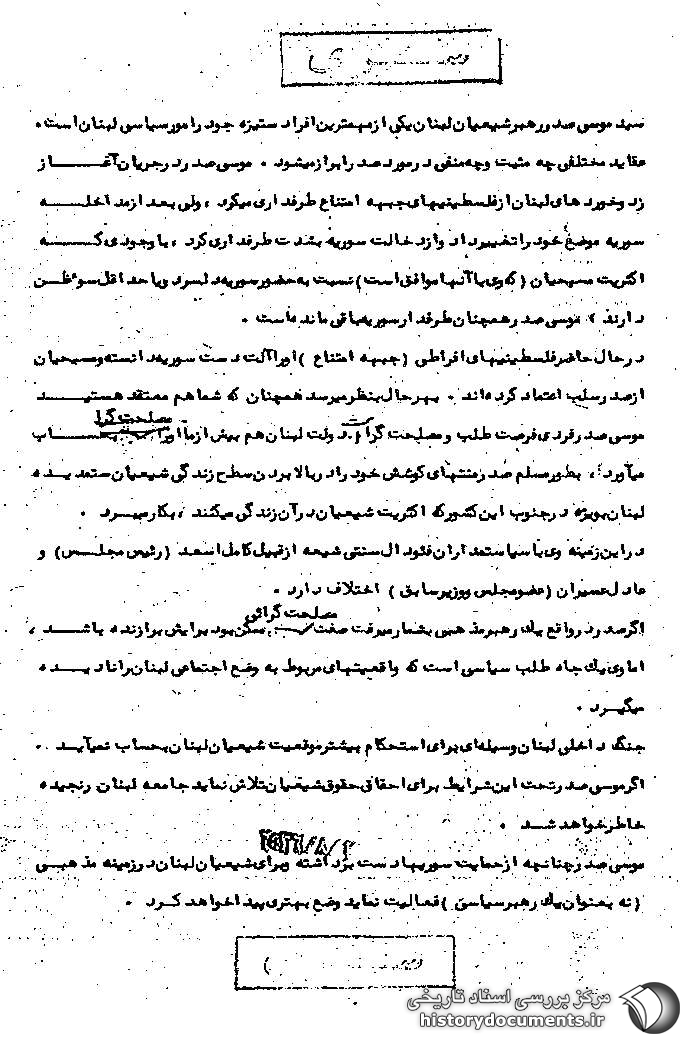 سید موسی صدر رهبر شیعیان لبنان یکی از مهمترین افراد ستیزه جو در امور سیاسی لبنان است.
عقاید مختلفی چه مثبت و چه منفی در مورد صدر ابراز میشود . موسی صدر در جریان آغاز
زد و خورد های لبنان از فلسطینیهای جبهه امتناع طرفداری میکرد ، ولی بعد از مداخله
سوریه موضع خود را تغییر داد و از دخالت سوریه بشدت طرفداری کرد ، با وجودی که
اکثریت مسیحیان (که وی با آنها موافق است) نسبت به حضور سوریه دلسرد و یا حداقل سوءظن
دارند ، موسی صدر همچنان طرفدار سوریه باقی مانده است .
در حال حاضر فلسطینیهای افراطی (جبهه امتناع ) او را آلت دست سوریه دانسته و مسیحیان
از صدر سلب اعتماد کرده اند . بهر حال بنظر میرسد همچنان که شما هم معتقد هستید
مصلحت گرا
موسی صدر فردی فرصت طلب و مصلحت گرا است. دولت لبنان هم بیش از ما او را بحساب
میآورد ، بطور مسلم صدر منتهای کوشش خود را در بالا بردن سطح زندگی شیعیان ستمدیده
لبنان بویژه در جنوب این کشور که اکثریت شیعیان در آن زندگی میکنند ، بکار میبرد .
در این زمینه وی با سیاستمداران فئودال سنتی شیعه از قبیل کامل اسعد (رئیس مجلس) و
عادل عسیران (عضو مجلس و وزیر سابق ) اختلاف دارد .
مصلحت گرائی
اگر صدر در واقع یك رهبر مذهبی بشمار میرفت صفت ممکن بود برایش برازنده باشد ،
اما وی یك جاه طلب سیاسی است که واقعیتهای مربوط به وضع اجتماعی لبنان را نادیده
میگیرد .
جنگ داخلی لبنان وسیله ای برای استحکام بیشتر موقعیت شیعیان لبنان بحساب نمیآید .
اگر موسی صدر تحت این شرایط برای احقاق حقوق شیعیان تلاش نماید جامعه لبنان رنجیده
خاطر خواهد شد .
موسی صدر چنانچه از حمایت سوریها دست برداشته و برای شیعیان لبنان در زمینه مذهبی
(نه بعنوان یك رهبر سیاسی ) فعالیت نماید وضع بهتری پیدا خواهد کرد .
مرکز بررسی اسناد تاریخی
historydocuments.ir